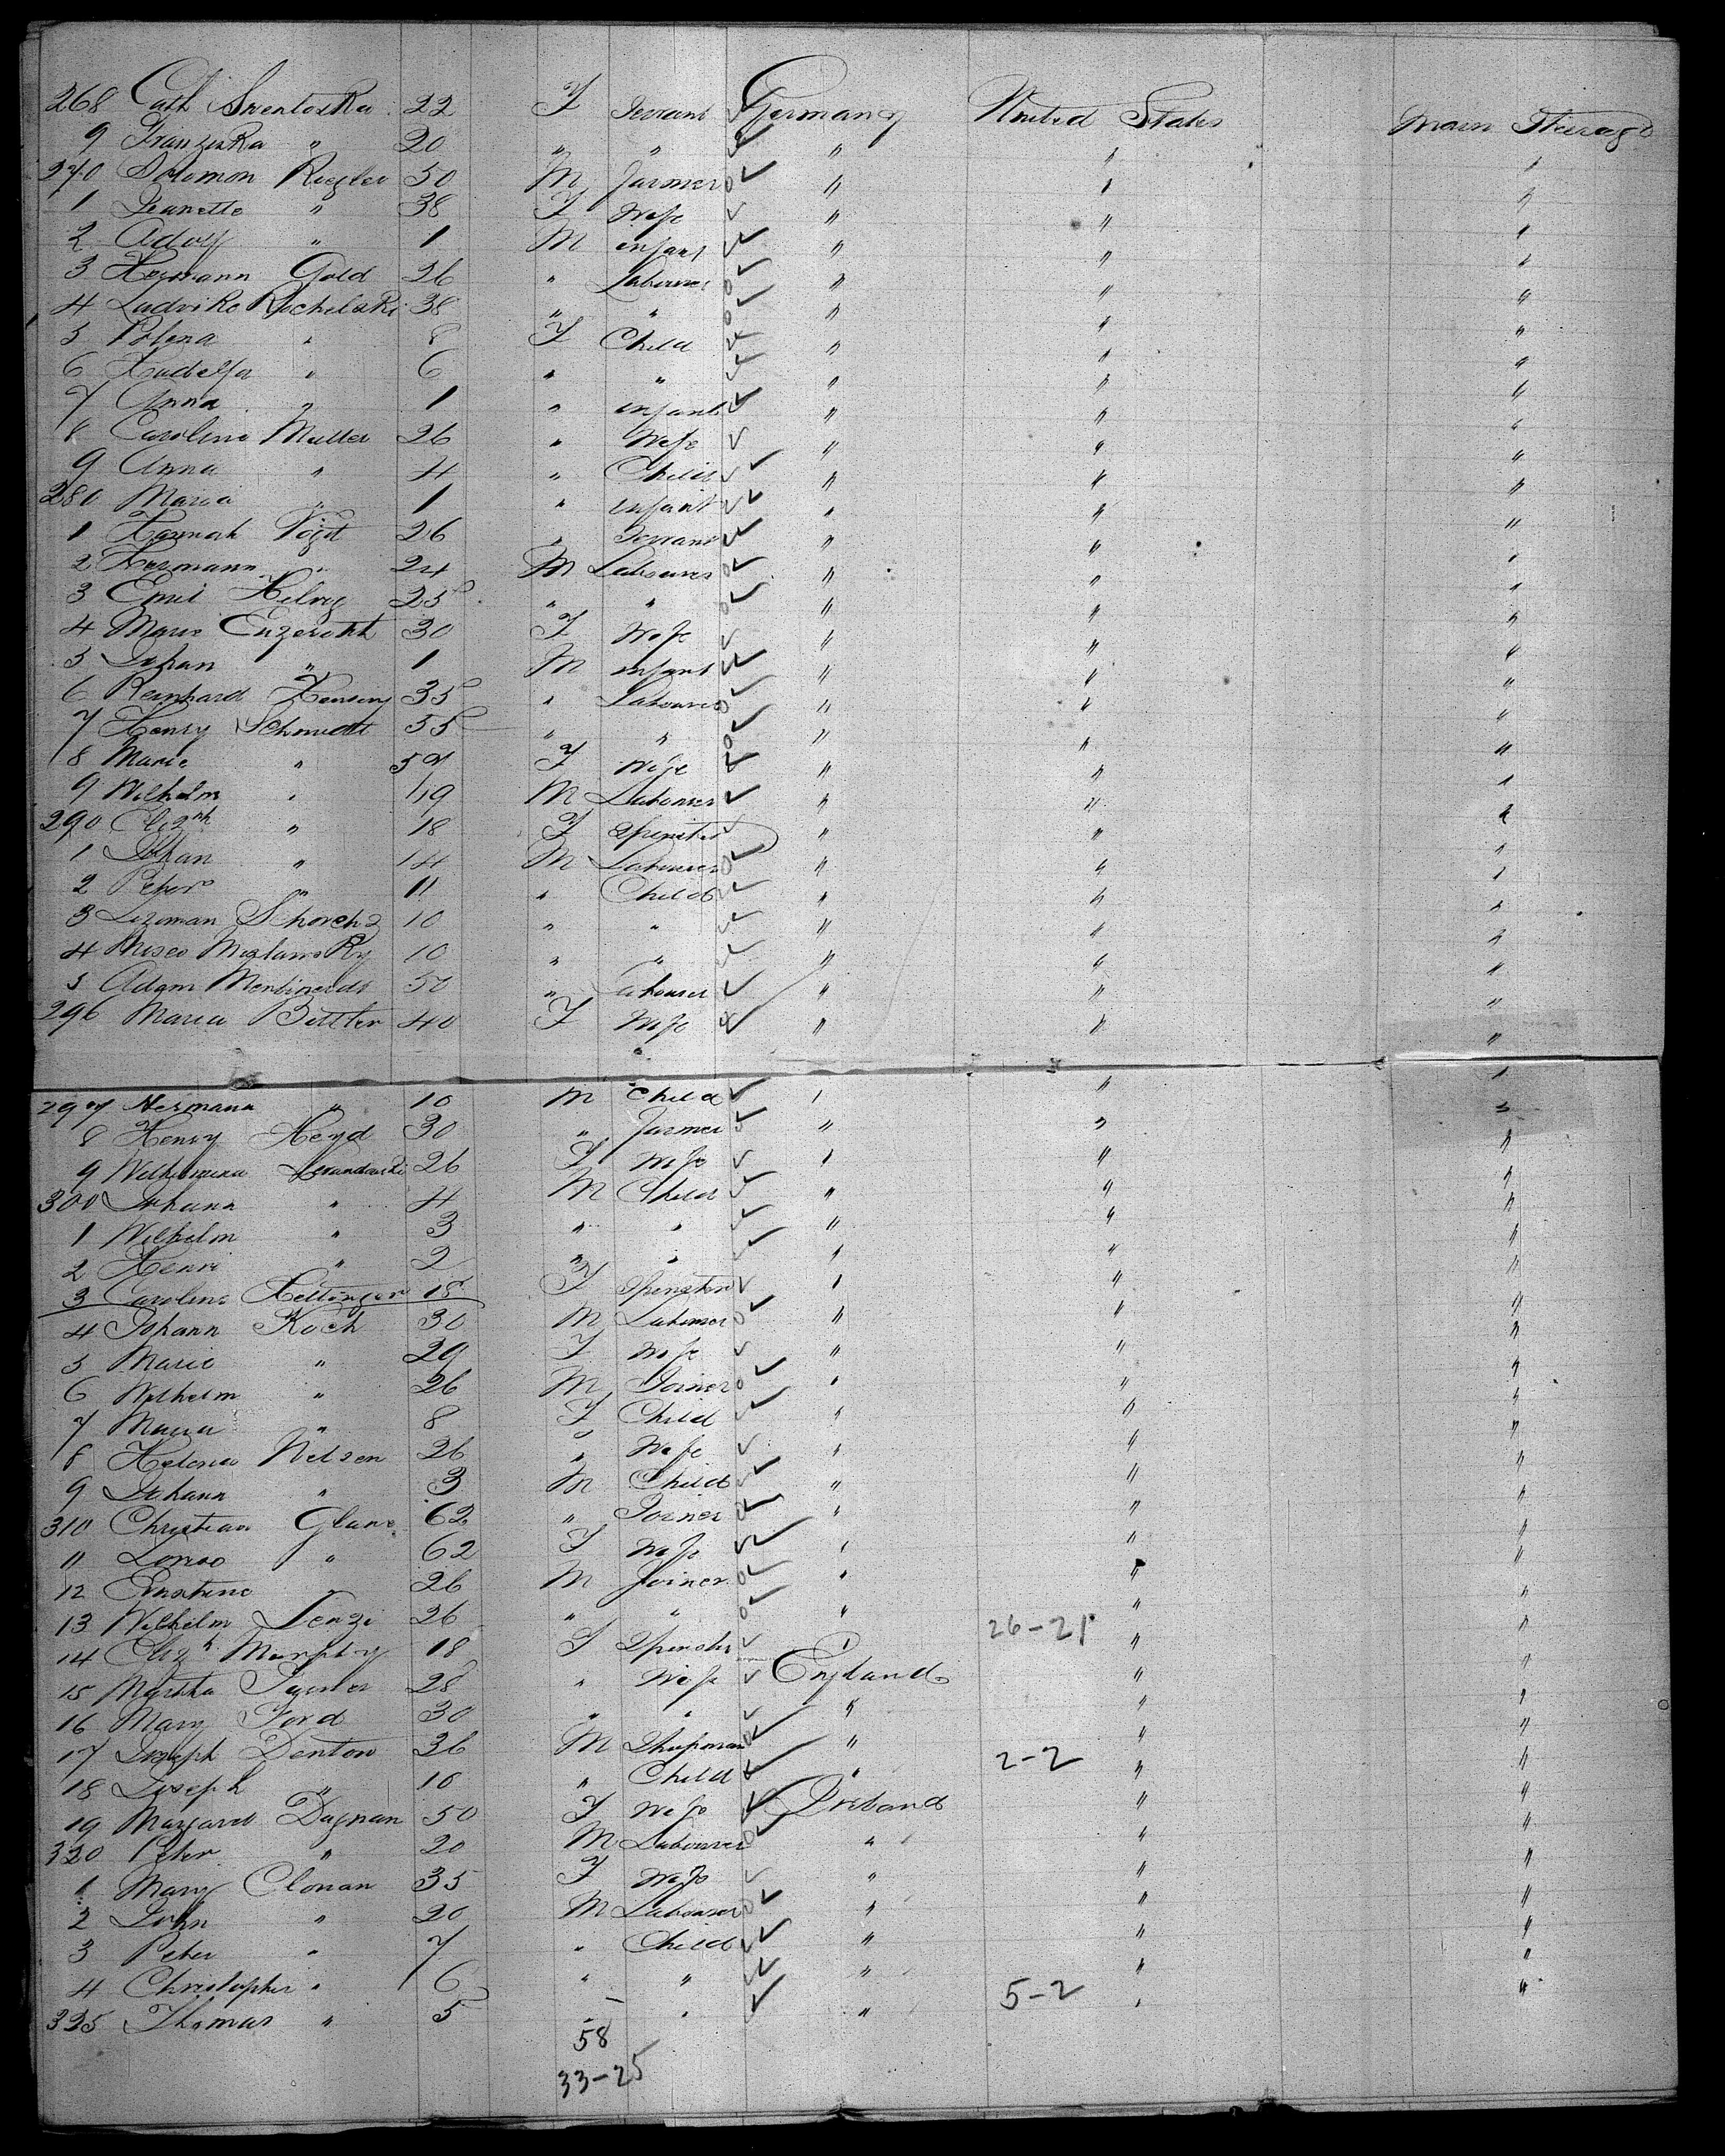 268 Cath Swentoska 22 F Servant Germany United States Main Steerage
9 Franziska " 20 " " " " "
270 Solomon Riegler 50 M Farmer " " "
1 Jeanette " 38 F Wife " " "
2 Adolf " 1 M infant " " "
3 Hermann Gold 26 " Labourer " " "
4 Ludvika 38 " " " " "
5 " 8 F Child " " "
6 " 6 " " " " "
7 Anna " 1 " infant " " "
8 Caroline Muller 26 " Wife " " "
9 Anna " 4 " Child " " "
280 Maria " 1 " infant " " "
1 Hannah Voigt 26 " Servant " " "
2 Hermann " 24 M Labourer " " "
3 Emil Helvig 25 " " " " "
4 Marie Enzeroth 30 F Wife " " "
5 Johan " 1 M infant " " "
6 Reinhard 35 " Labourer " " "
7 Henry Schmidt 55 " " " " "
8 Marie " 54 F Wife " " "
9 Wilhelm " 19 M Labourer " " "
290 Elizth " 18 F Spinster " " "
1 Johan " 14 M Labourer " " "
2 Peter " 11 " Child " " "
3 10 " " " " "
4 10 " " " " "
5 Adam 50 " Labourer " " "
296 Maria Bettler 40 F Wife " " "
297 Hermann " 10 M Child " " "
8 Henry Heyd 30 " Farmer " " "
9 Wilhelmina 26 F Wife " " "
300 Johann " 4 M Child " " "
1 Wilhelm " 3 " " " " "
2 Henri " 2 " " " " "
3 Caroline Hettinger 18 F Spinster " " "
4 Johann Koch 30 M Labourer " " "
5 Marie " 29 F Wife " " "
6 Wilhelm " 26 M Joiner " " "
7 Maria " 8 F Child " " "
8 Helena Nelsen 26 " Wife " " "
9 Johann " 3 M Child " " "
310 Christian Glane 62 " Joiner " " "
11 " 62 F Wife " " "
12 Ernstine " 26 M Joiner " " "
13 Wilhelm 26 " " " 26-21 " "
14 Elizh Murphy 18 F Spinster " " "
15 Martha 28 " Wife England " "
16 Mary Ford 30 " " " " "
17 Joseph Denton 36 M " " "
18 Joseph " 10 " Child " 2-2 " "
19 Margaret Dagnan 50 F Wife Ireland " "
320 Peter " 20 M Labourer " " "
1 Mary Clonan 35 F Wife " " "
2 John " 20 M Labourer " " "
3 Peter " 7 " Child " " "
4 Christopher " 6 " " " " "
325 Thomas " 5 " " " 5-2 "
58
33-25